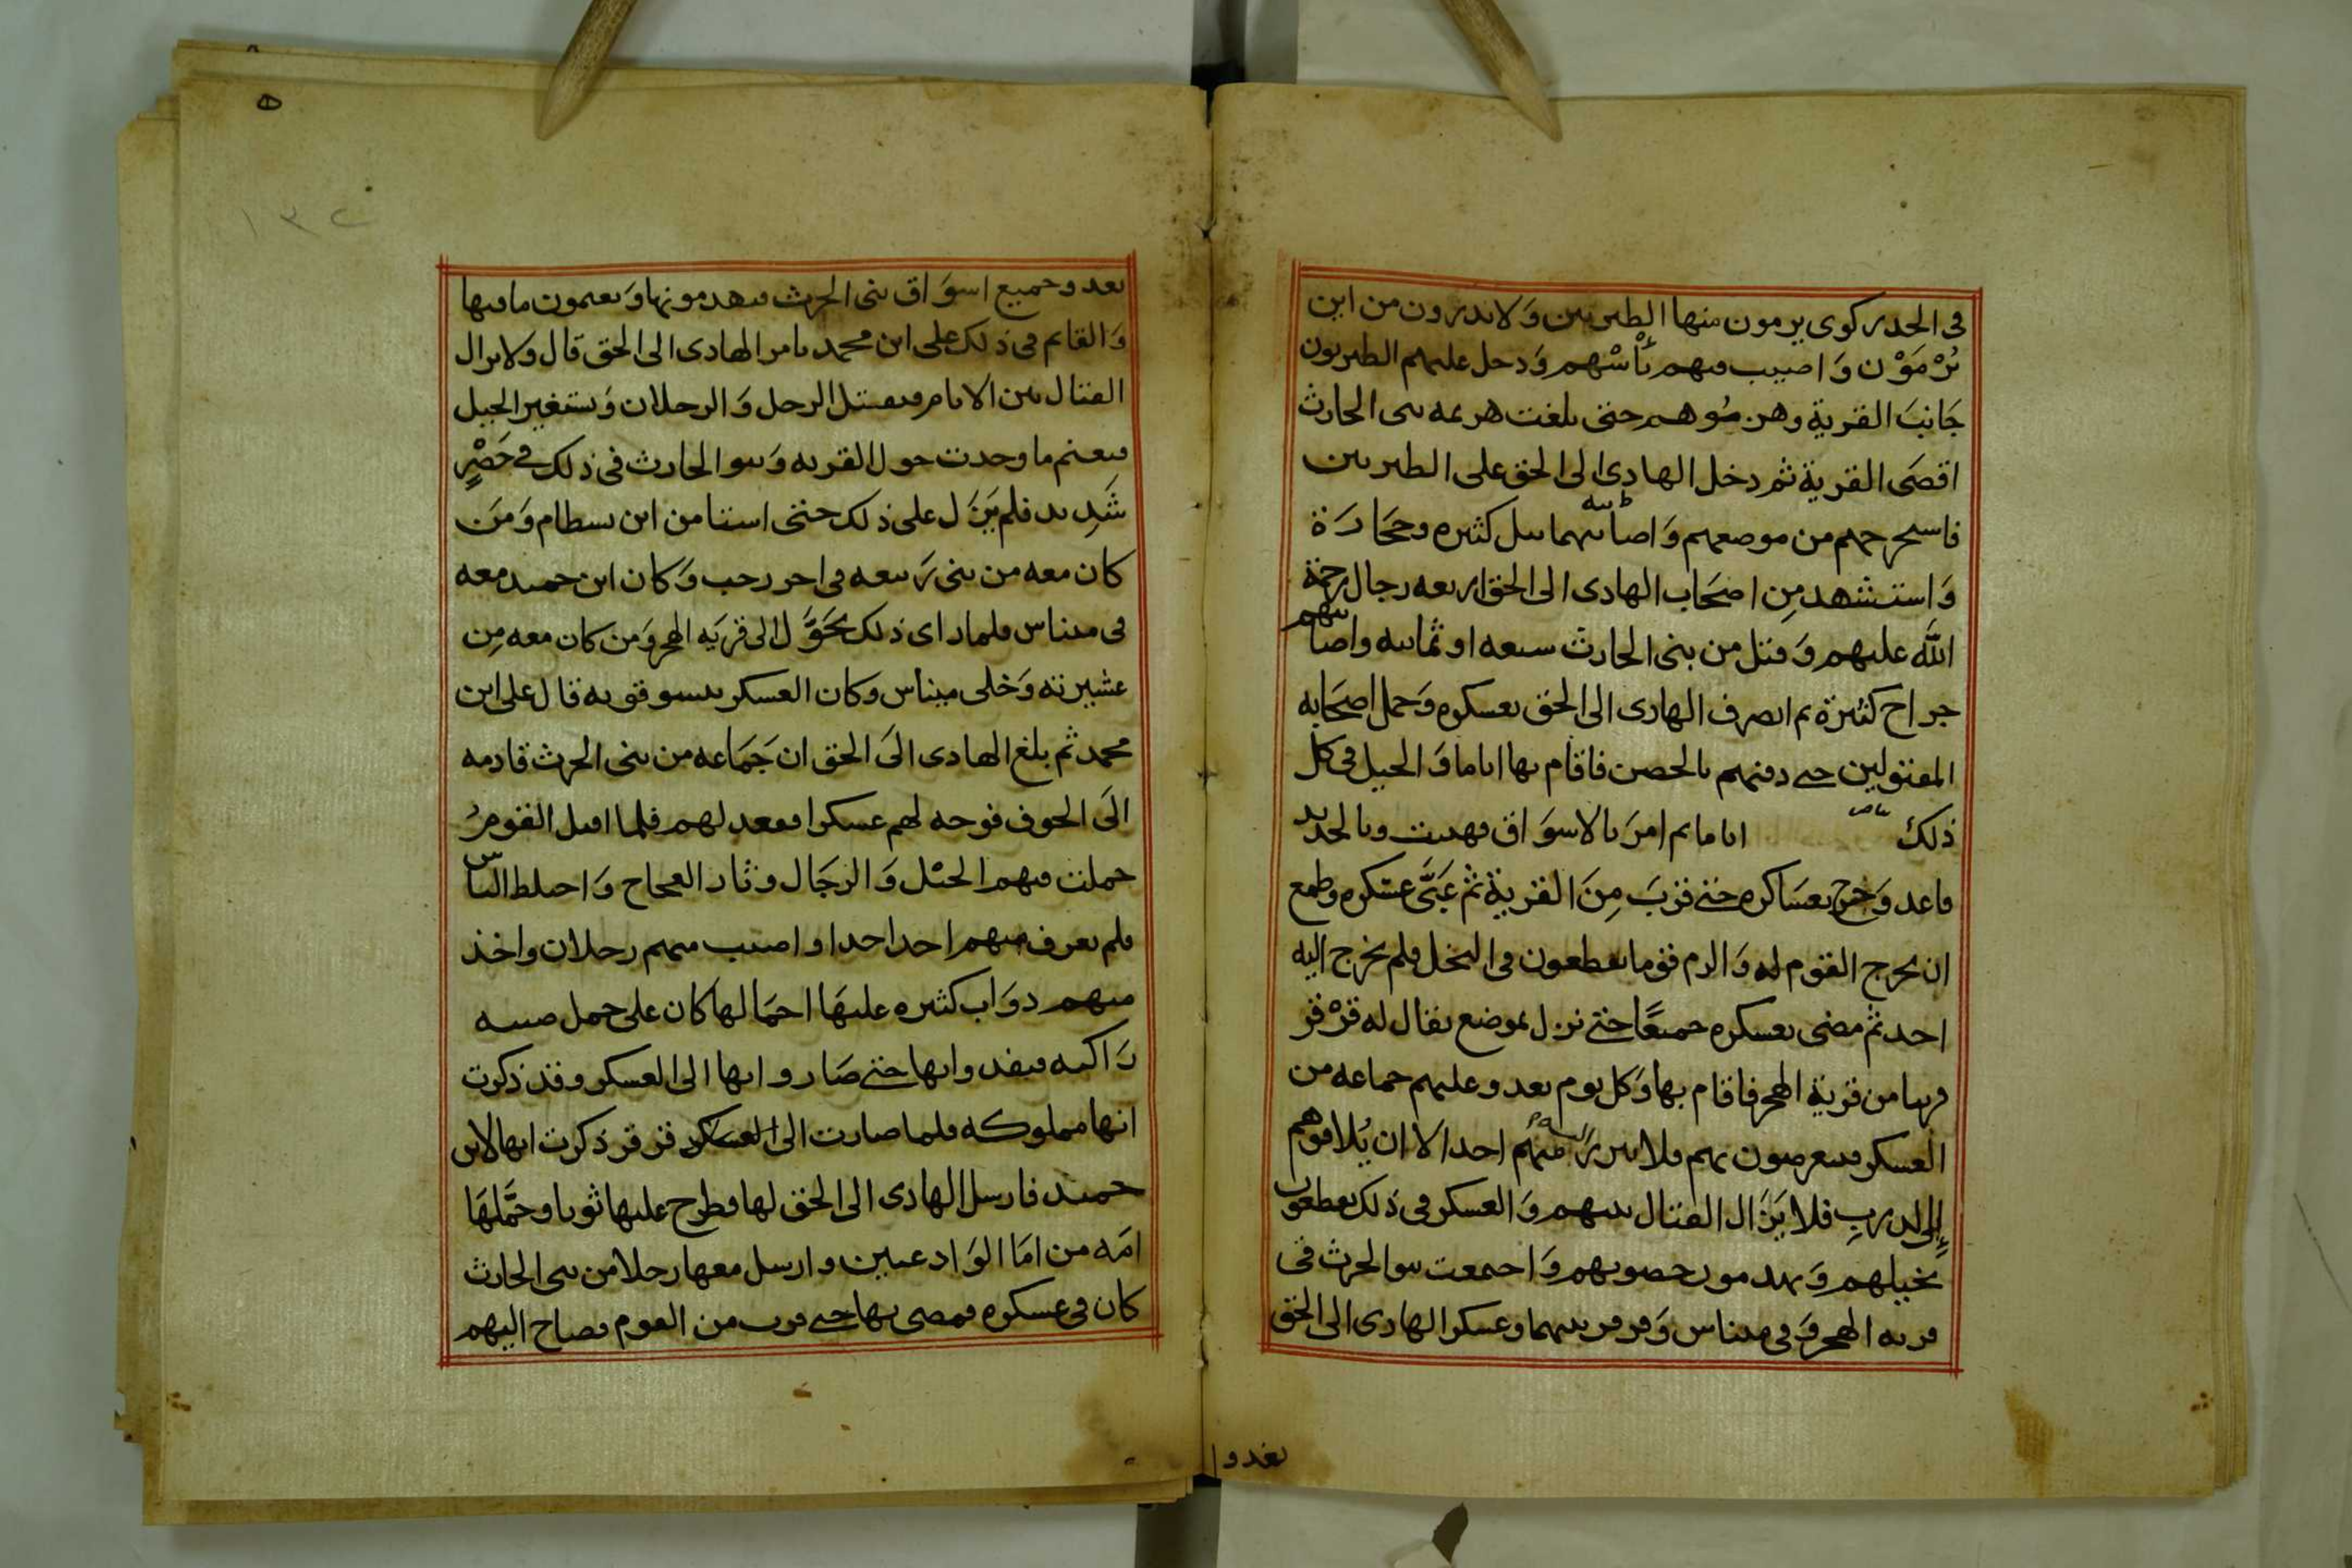 في الجدر كوى يرمون منها الطبريين وَلا يدرون من اين
يُرْمَوْن وَاصيب منهم نَاسْ منهم وَدخل عليهم الطبريون
جَانبَ القرية وهزموهم حتى بلغت هزيمه بنى الحارث
اقصَى القرية ثم دخل الهادى الى الحق على الطبريين
فاستخرجهم من موضعهم وَاصابتهما نبل كثيره وحجَارَة
وَاستشهد مِن اصحَاب الهادى الى الحق اربعه رجال رحمة
الله عليهم وَقتل من بنى الحارث سبعه او ثمانيه واصابتهم
جراح كثيرة ثم انصرف الهادى الى الحق بعسكره وَحمل اصحَابه
المقتولين حتى دفنهم بالحصن فاقام بها اياما وَالخيل في كل
ذلك اياما ثم امرَ بالاسوَاق فهيئت وبالحديد
فاعد وَخرج بعسَاكره حتى قربَ مِنَ القرية ثم عَبَّى عسكره وطمع
ان يخرج القوم له وَالزم قوما يقطعون في النخل فلم يخرج اليه
احد ثم مضى بعسكره جميعًا حتى نزل بموضع يقال له قرْقر
قريبا من قرية الهجر فاقام بها وَكل يوم يغدو عليهم جماعه من
العسكر فيتعرضون بهم فلا يبرزَ اليهم منهم احد الا ان يُلاقوهم
إلى الدربِ فلا يَزَال القتال بينهم وَالعسكر في ذلك يقطعون
نخيلهم وَيهدمون حصونهم وَاجتمعت بنو الحرث في
قريه الهجر وَفي ميناس وَقرقر بينهما وعسكر الهادى الى الحق
يغدوا
١٣٢
بعد وجميع اسوَاق بنى الحرث فيهدمونها وَيغنمون ما فيها
وَالقايم في ذلك على ابن محمد بامر الهادى الى الحق قال ولا يزال
القتال بين الايام فيقتتل الرجل وَالرجلان وَتستغير الخيل
فيغنم ما وجدت حول القريه وَبنو الحارث في ذلك في حَصْرٍ
شَدِيد فلم يَزَل على ذلك حتى استامن ابن بسطام وَمَن
كان معه من بنى رَبيعه في اخر رجب وَكان ابن حميد معه
في ميناس فلما راى ذلك تحَوَّل الى قريَه الهجر وَمن كان معه مِن
عشيرته وَخلى ميناس وكان العسكر يتسوقو به قال على ابن
محمد ثم بلغ الهادى الىَ الحق ان جَمَاعه من بنى الحرث قادمه
الىَ الجوف فوجه لهم عسكرا فقعد لهم فلما اقبل القومُ
حملت فيهم الخيْل وَالرجَال وثار العجاج وَاختلط الناس
فلم يعرف منهم احد احدا واصيب منهم رجلان واخذ
منهم دوَاب كثيره عليهَا احمَالها كان على جمل صبيه
رَاكبه فيقدوابها حتى صَاروابها الى العسكر وقد ذكرت
انها مملوكه فلما صارت الى العسكر قرقر ذكرت انها لابن
حميد فارسل الهادى الى الحق لها وطرح عليها ثوبا وحمَّلهَا
امَه من امَا الوَادعيين وارسل معها رجلا من بنى الحارث
كان في عسكره فمضى بها حتى قرب من القوم فصاح اليهم